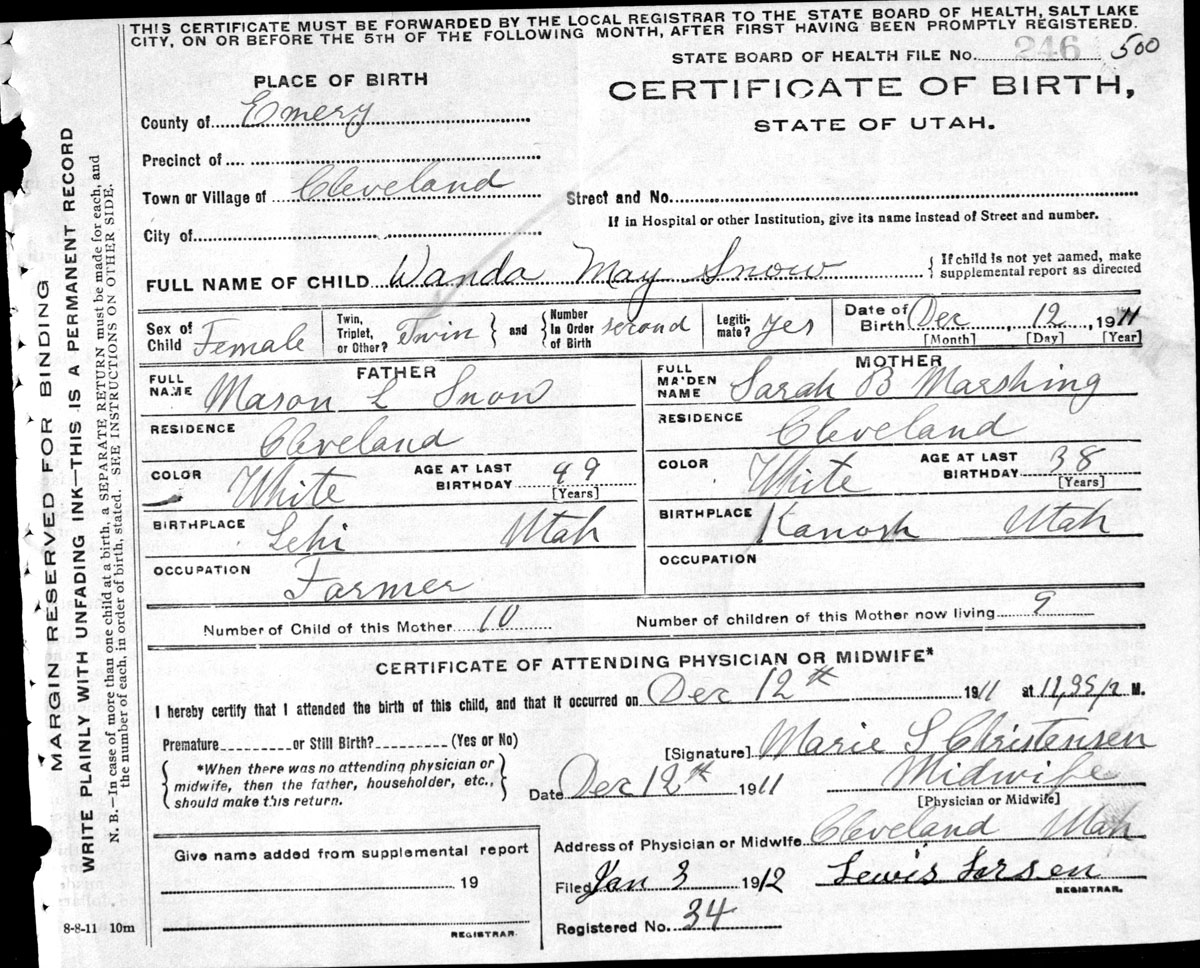 THIS CERTIFICATE MUST BE FORWARDED BY THE LOCAL REGISTRAR TO THE STATE BOARD OF HEALTH, SALT LAKE
CITY, ON OR BEFORE THE 5TH OF THE FOLLOWING MONTH, AFTER FIRST HAVING BEEN PROMPTLY REGISTERED.
STATE BOARD OF HEALTH FILE No. 246 500
PLACE OF BIRTH
CERTIFICATE OF BIRTH,
STATE OF UTAH.
County of Emery
Precinct of
Town or Village of Cleveland
Street and No.
If in Hospital or other Institution, give its name instead of Street and number.
City of
FULL NAME OF CHILD Wanda May Snow
{ If child is not yet named, make
supplemental report as directed
Sex of Child Female
Twin, Triplet, or Other? Twin } and { Number In Order of Birth second
Legitimate? yes
Date of Birth Dec 12, 1911
[Month] [Day] [Year]
FATHER
FULL NAME Mason L Snow
RESIDENCE Cleveland
COLOR White AGE AT LAST BIRTHDAY 49
[Years]
BIRTHPLACE Lehi Utah
OCCUPATION Farmer
MOTHER
FULL MA'DEN NAME Sarah B Marshing
RESIDENCE Cleveland
COLOR White AGE AT LAST BIRTHDAY 38
[Years]
BIRTHPLACE Kanosh Utah
OCCUPATION
Number of Child of this Mother 10 Number of children of this Mother now living 9
CERTIFICATE OF ATTENDING PHYSICIAN OR MIDWIFE*
I hereby certify that I attended the birth of this child, and that it occurred on Dec 12th 1911 at M.
Premature or Still Birth? (Yes or No)
{ *When there was no attending physician or
midwife, then the father, householder, etc.,
should make this return. }
[Signature] Marie S Christensen
Midwife
[Physician or Midwife]
Date Dec 12th 1911
Address of Physician or Midwife Cleveland Utah
Give name added from supplemental report
19
REGISTRAR.
Filed Jan 3 1912 Lewis Larsen
REGISTRAR.
Registered No. 34
8-8-11 10m
MARGIN RESERVED FOR BINDING
WRITE PLAINLY WITH UNFADING INK—THIS IS A PERMANENT RECORD
N. B.—In case of more than one child at a birth, a SEPARATE RETURN must be made for each, and
the number of each, in order of birth, stated. SEE INSTRUCTIONS ON OTHER SIDE.